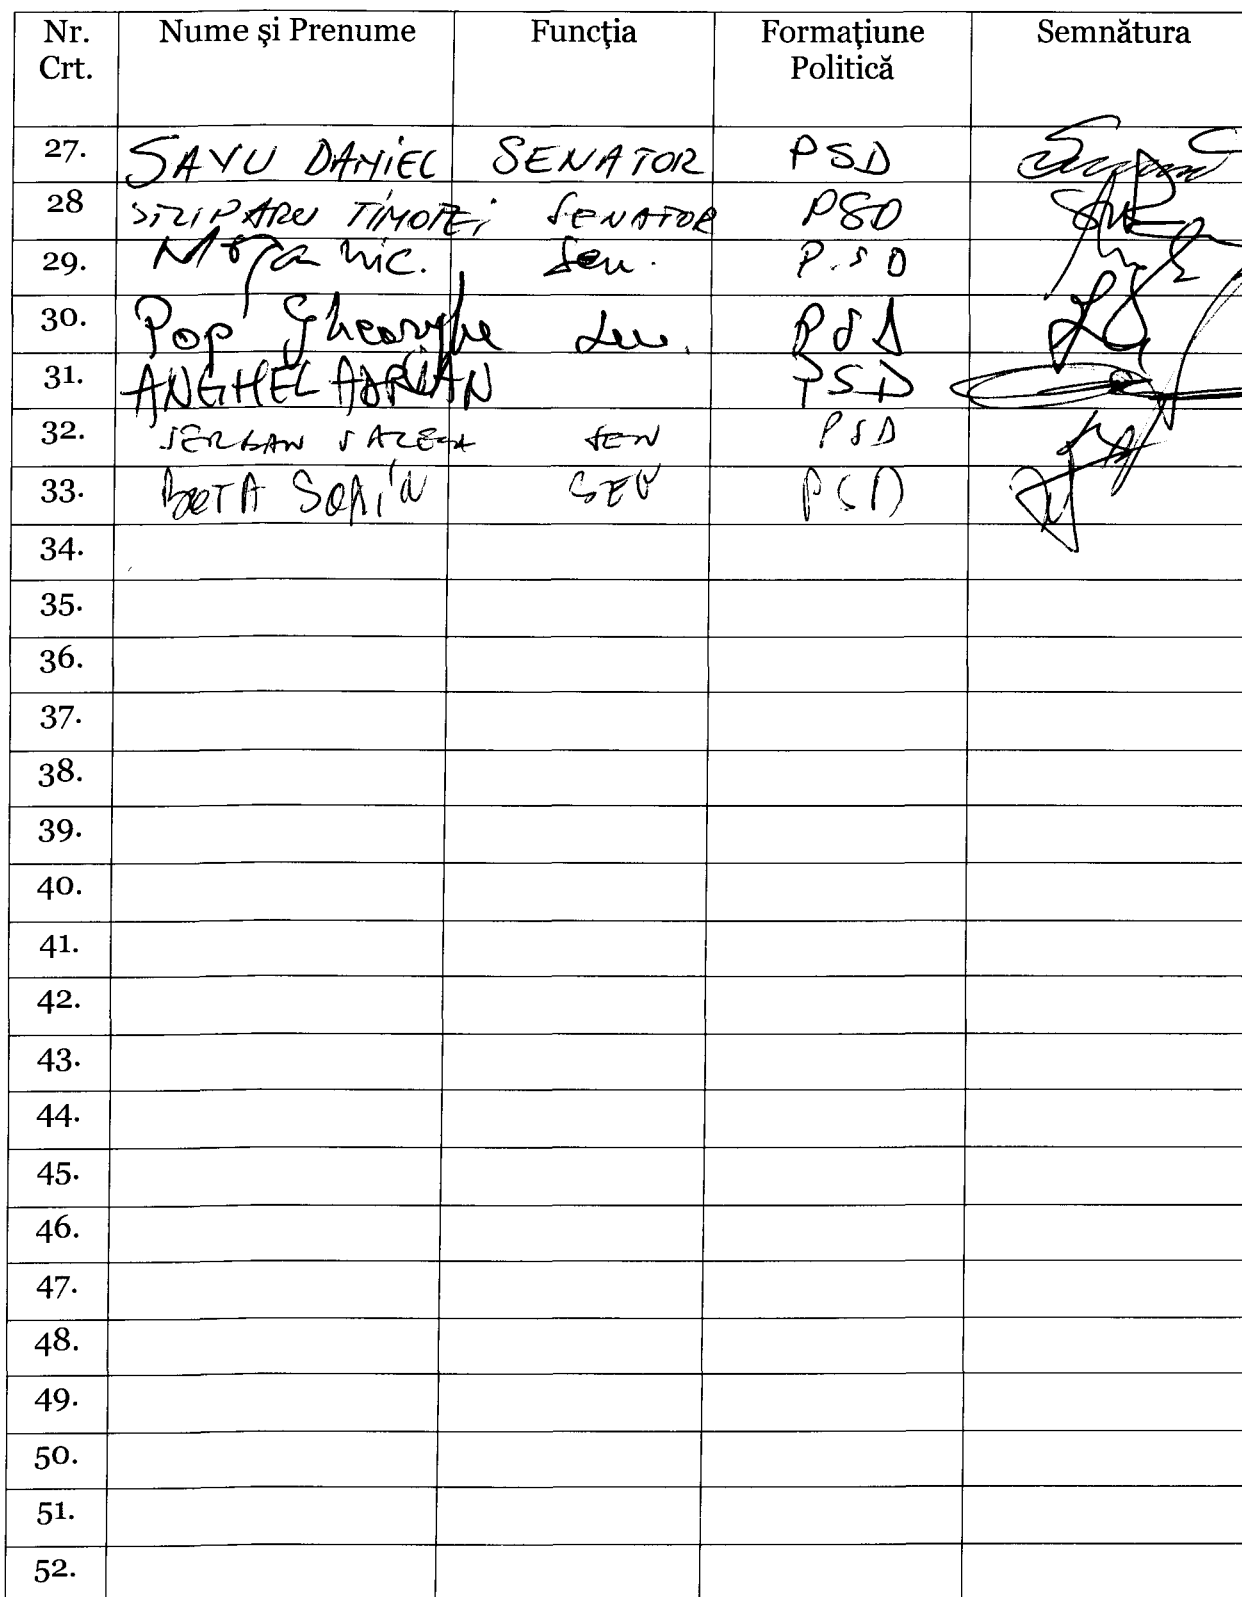 Nr. Crt. Nume şi Prenume Funcţia Formaţiune Politică Semnătura
27. SAVU DANIEL SENATOR PSD
28 STRIPARU TIMOTEI SENATOR PSD
29. Moga Nic. Sen. P.S D
30. Pop Gheorghe Sen. PSD
31. ANGHEL ADRIAN PSD
32. SERBAN SEN PSD
33. BOTA SORIN SEN PSD
34.
35.
36.
37.
38.
39.
40.
41.
42.
43.
44.
45.
46.
47.
48.
49.
50.
51.
52.